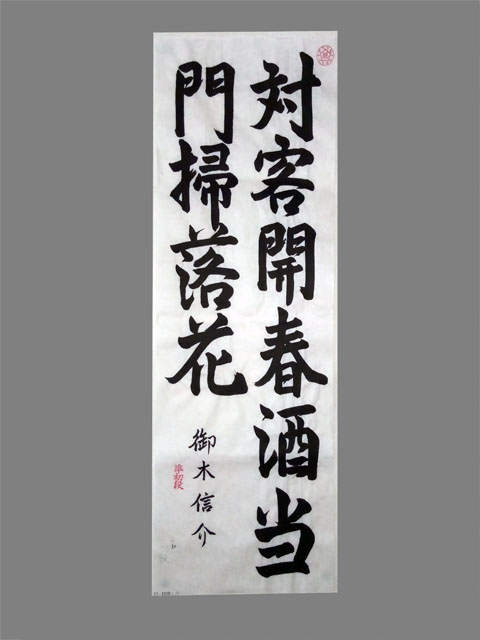 対客開春酒当
門掃落花
御木信介
準初段